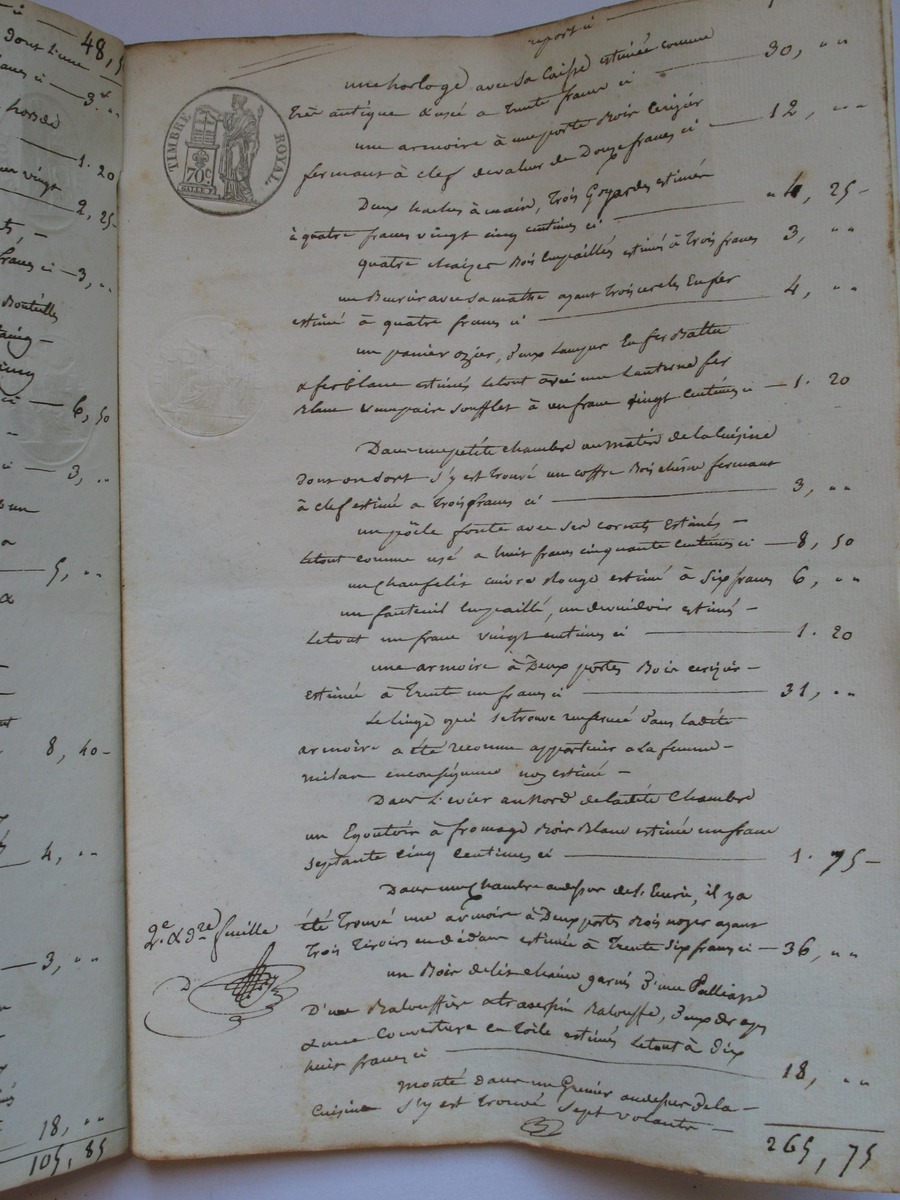 48, 5
dont l'une
3, ..
hors de
1. 20
vingt
2, 25-
francs ci — 3, ..
Bouteilles
cinq
ci — 6, 50
3, ..
5, ..
8, 40-
4, ..
3, ..
18, ..
105, 85
report ci
une horloge avec sa Caisse estimée comme
très antique & usé a trente francs ci — 30, ..
une armoire à une porte Bois Cerizier
fermant à clef de valeur de Douze francs ci — 12, ..
Deux haches à main, trois Goyardes estimés
à quatre francs vingt cinq centimes ci — 4, 25-
quatre chaizes Bois Empaillés estimés à trois francs 3, ..
un Beurier avec sa mathe ayant trois cercles En fer
estimé à quatre francs ci — 4, ..
un panier ozier, deux lampes En fer Battu
& fer blanc estimés le tout avec une Lanterne fer
Blanc & une pair soufflet à un franc vingt Centimes ci — 1. 20
Dans une petite chambre au matin de la Cuisine
dont on sort s'y est trouvé un coffre Bois chêne fermant
à clef estimé a trois francs ci — 3, ..
un poële fonte avec ses cornets Estimés —
le tout comme usé a huit francs cinquante Centimes ci — 8, 50
un chaufelit cuivre Rouge estimé à Six francs 6, ..
un fauteuil Empaillé, un devuidoir estimés —
le tout un franc vingt centimes ci — 1. 20
une armoire à Deux portes Bois cerizier —
estimée à trente un francs ci — 31, ..
Le linge qui se trouve renfermé dans ladite
armoire a été reconnu appartenir a la femme —
en conséquence non estimé —
Dans l'evier au Nord de ladite Chambre
un Egoutoir à fromage Bois Blanc estimé un franc
septante Cinq Centimes ci — 1. 75-
Dans une Chambre au dessus de l'Ecurie, il y a
été trouvé une armoire à Deux portes Bois noyer ayant
trois tiroirs en dédans estimée à trente Six francs ci — 36, ..
un Bois de lit chêne garni d'une Palliasse
D'une Balouffière & traversin Balouffe, deux draps
& une Couverture en toile estimés le tout à Dix
huit francs ci — 18, ..
monté dans un Grenier au dessus de la —
Cuisine s'y est trouvé Sept volants —
265, 75
TIMBRE ROYAL.
70 c.
2.e & d.re feuille
D